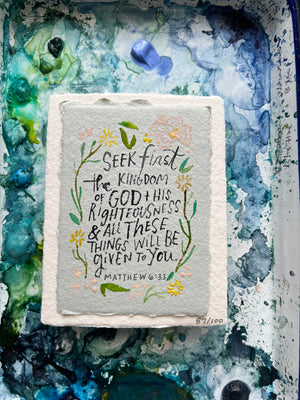 SEEK first
the KINGDOM
OF GOD + HIS
RIGHTEOUSNESS
& ALL THESE
THINGS WILL BE
given TO YOU.
MATTHEW 6:33
87/100